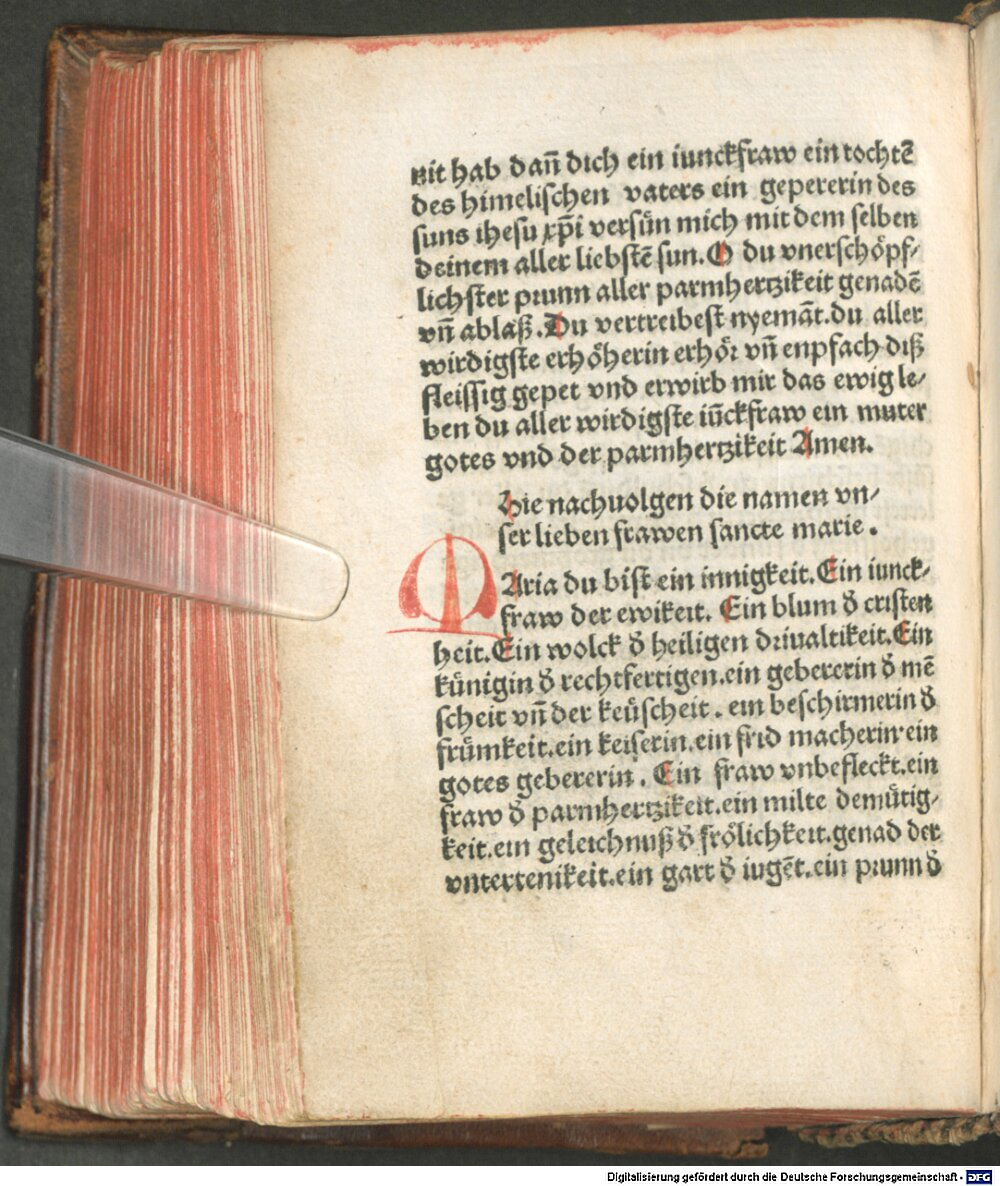 nit hab dañ dich ein iunckfraw ein tochtẽ
des himelischen vaters ein gepererin des
suns ihesu xp̃i versün mich mit dem selben
deinem aller liebstẽ sun. O du vnerschöpf⸗
lichster prunn aller parmhertzikeit genadẽ
vñ ablaß. Du vertreibest nyemãt. du aller
wirdigste erhöherin erhör vñ enpfach diß
fleissig gepet vnd erwirb mir das ewig le⸗
ben du aller wirdigste iũckfraw ein muter
gotes vnd der parmhertzikeit Amen.
Hie nachuolgen die namen vn⸗
ser lieben frawen sancte marie.
MAria du bist ein innigkeit. Ein iunck⸗
fraw der ewikeit. Ein blum d̕ cristen
heit. Ein wolck d̕ heiligen driualtikeit. Ein
künigin d̕ rechtfertigen. ein gebererin d̕ mẽ
scheit vñ der keüscheit. ein beschirmerin d̕
frümkeit. ein keiserin. ein frid macherin ein
gotes gebererin. Ein fraw vnbefleckt. ein
fraw d̕ parmhertzikeit. ein milte demütig⸗
keit. ein geleichnuß d̕ frölichkeit. genad der
vntertenikeit. ein gart d̕ iugẽt. ein prunn d̕
Digitalisierung gefördert durch die Deutsche Forschungsgemeinschaft - DFG